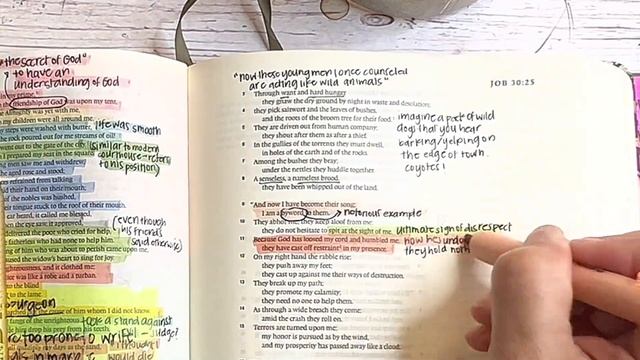 the secret of God"
to have an
understanding of God
friendship of God was upon my tent,
Almighty was yet with me,
my children were all around me,
steps were washed with butter, life was smooth
the rock poured out for me streams of oil!
went out to the gate of the city, (similar to modern
I prepared my seat in the square, courthouse - return
young men saw me and withdrew, to his position)
the aged rose and stood;
refrained from talking
laid their hand on their mouth;
the nobles was hushed,
their tongue stuck to the roof of their mouth.
ear heard, it called me blessed,
the eye saw it, it approved, (even though
delivered the poor who cried for help, his friends
fatherless who had none to help him. said otherwise)
blessing of him who was about to perish came upon me,
caused the widow's heart to sing for joy.
righteousness, and it clothed me;
justice was like a robe and a turban.
to the blind
to the lame.
Spurgeon
the cause of him whom I did not know.
fangs of the unrighteous took a stand against
made him drop his prey from his teeth.
are too prone to
would die
JOB 30:25
"now these young men I once counseled
are acting like wild animals"
3 Through want and hard hungry
they gnaw the dry ground by night in waste and desolation;
4 they pick saltwort and the leaves of bushes,
and the roots of the broom tree for their food. imagine a pack of wild
5 They are driven out from human company; dogs that you hear
they shout after them as after a thief. barking/yelping on
6 In the gullies of the torrents they must dwell, the edge of town.
in holes of the earth and of the rocks. coyotes!
7 Among the bushes they bray;
under the nettles they huddle together.
8 A senseless, a nameless brood,
they have been whipped out of the land.
9 "And now I have become their song;
I am a byword to them. notorious example
10 They abhor me; they keep aloof from me;
they do not hesitate to spit at the sight of me. ultimate sign of disrespect
11 Because God has loosed my cord and humbled me,
they have cast off restraint in my presence. they hold
12 On my right hand the rabble rise;
they push away my feet;
they cast up against me their ways of destruction.
13 They break up my path;
they promote my calamity;
they need no one to help them.
14 As through a wide breach they come;
amid the crash they roll on.
15 Terrors are turned upon me;
my honor is pursued as by the wind,
and my prosperity has passed away like a cloud.